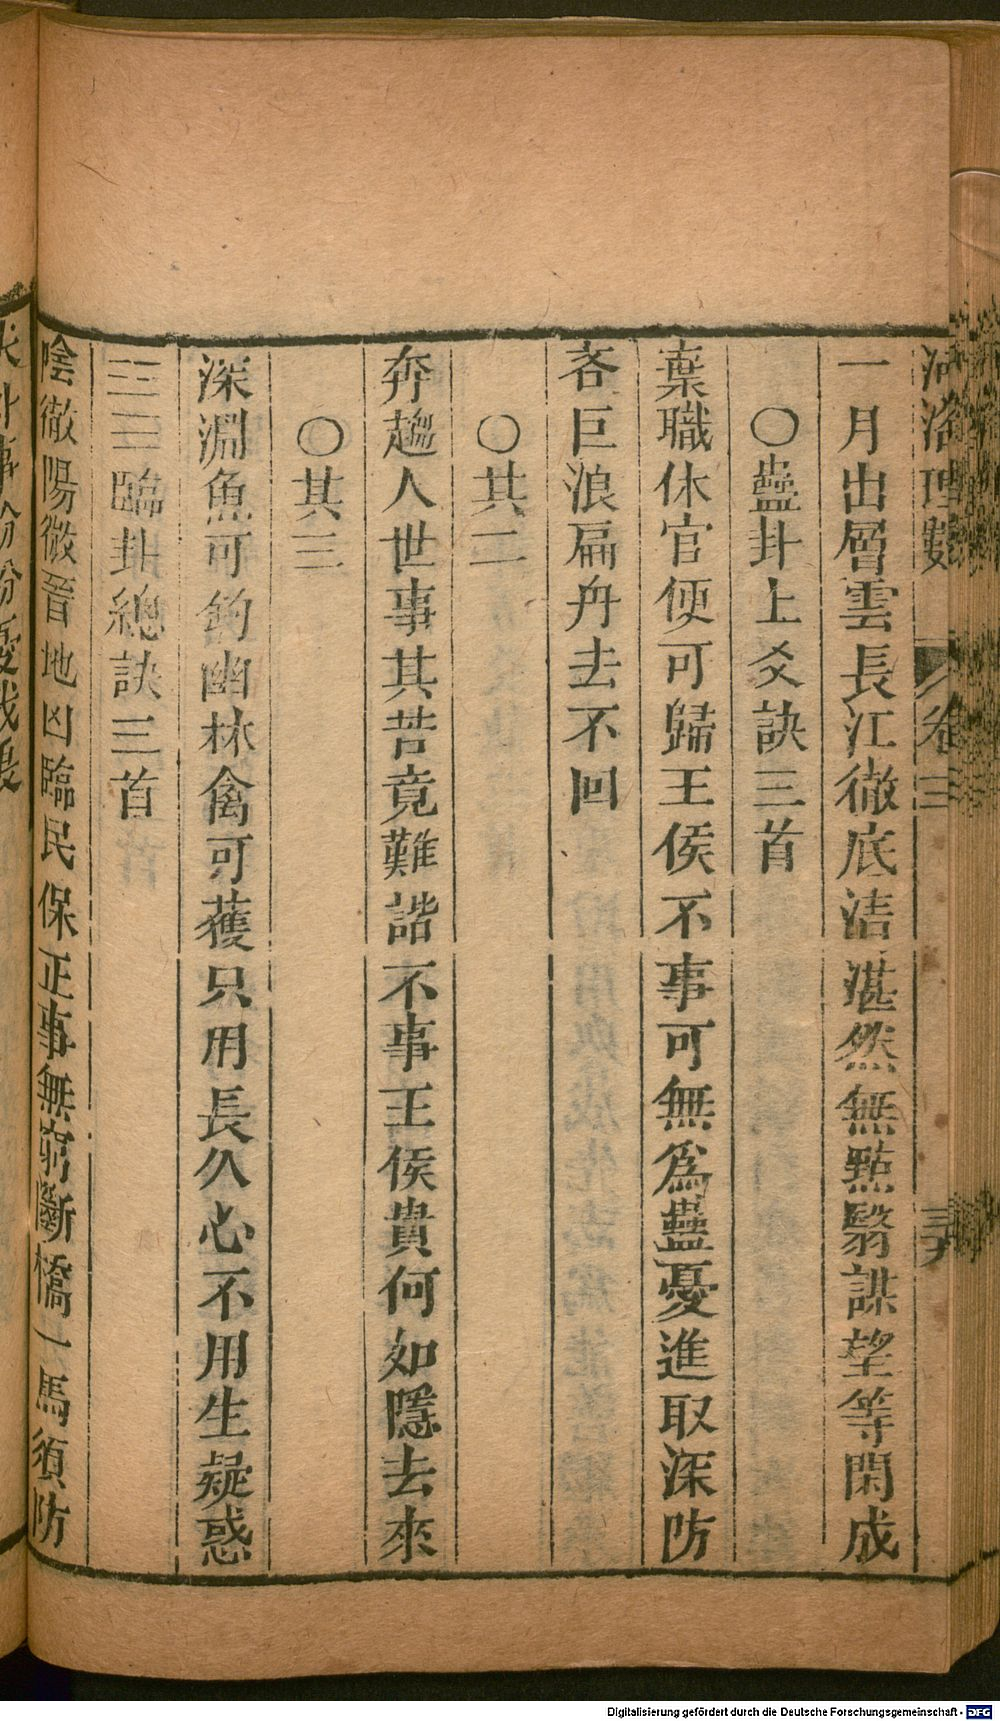 河洛理數 卷三 三十六
一月出層雲長江徹底洁湛然無點翳謀望等閑成
〇蠱卦上爻訣三首
棄職休官便可歸王侯不事可無爲蠱憂進取深防
吝巨浪扁舟去不回
〇其二
奔趨人世事其苦竟難諧不事王侯貴何如隱去來
〇其三
深淵魚可釣幽林禽可獲只用長久心不用生疑惑
臨卦總訣三首
陰徹陽微晉地凶臨民保正事無窮斷橋一馬須防
事紛紛憂
Digitalisierung gefördert durch die Deutsche Forschungsgemeinschaft - DFG